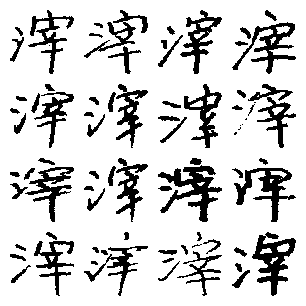 滓滓滓滓
滓滓滓滓
滓滓滓滓
滓滓滓滓